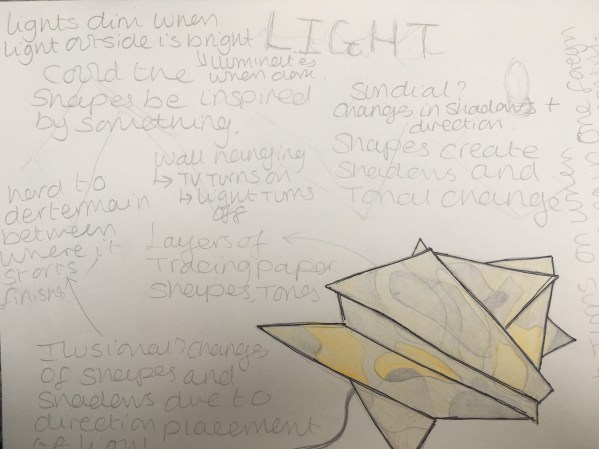 lights dim when
light outside is bright
LIGHT
illuminates
when dark.
Could the
Shapes be inspired
by something.
Sundial?
changes in shadows +
direction
Shapes create
Shadows and
Tonal change
wall hanging
↳ TV turns on
↳ Light turns
off
hard to
dertermain
between
where it
starts /
finishes
Layers of
Tracing paper
Shapes, Tones
Ilusional? changes
of shapes and
Shadows due to
direction placement
of light